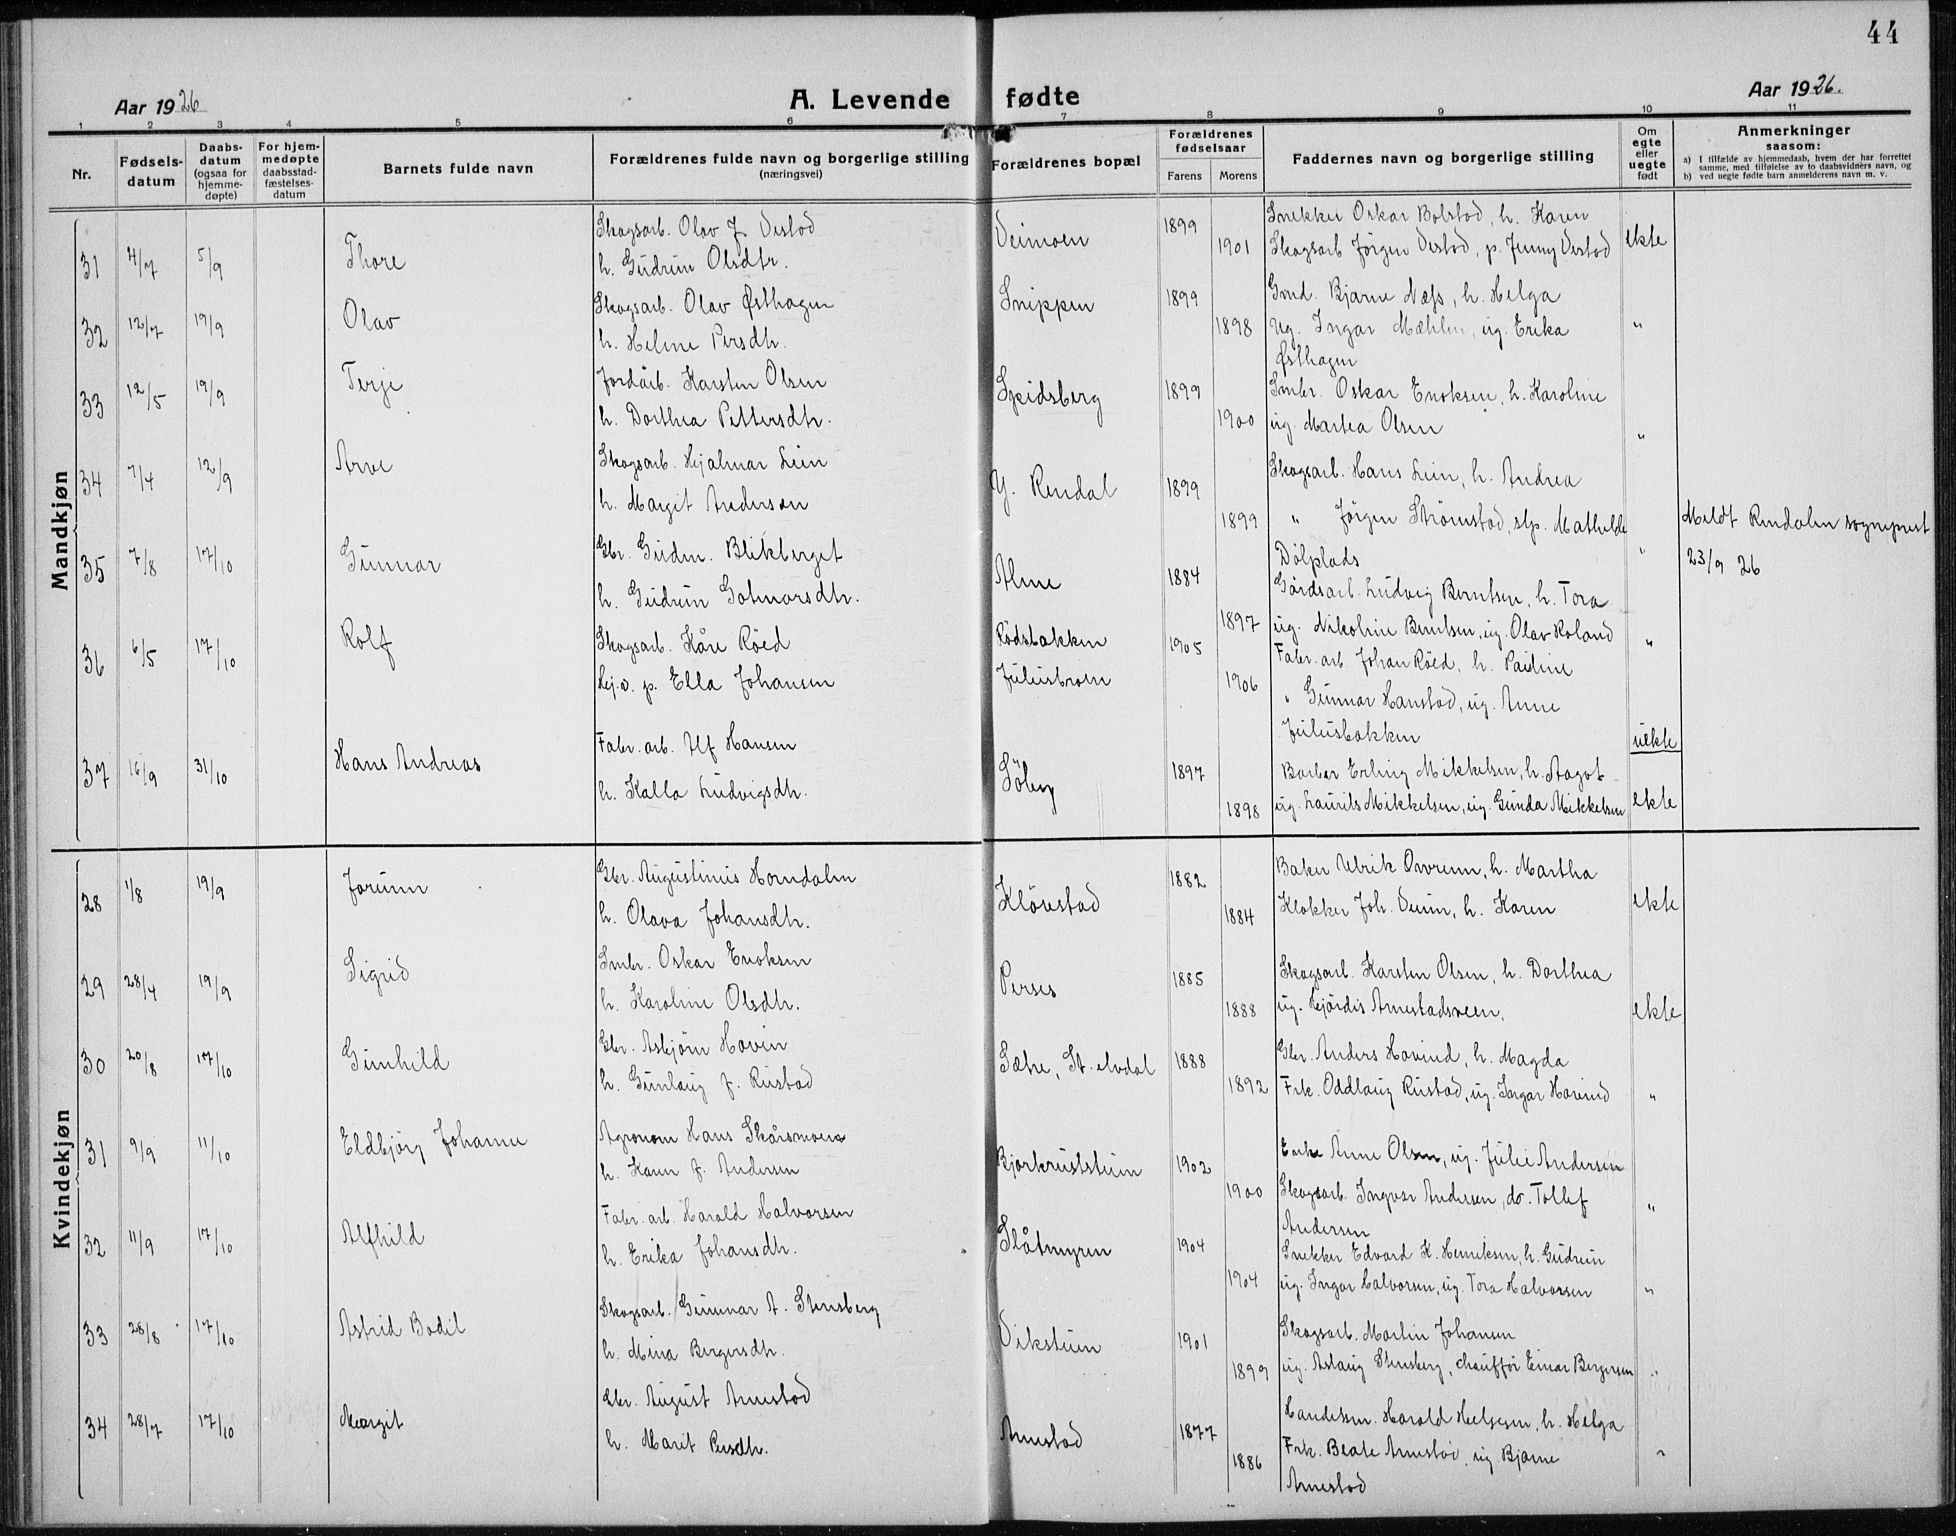 44
Aar 1926
A. Levende fødte
Aar 1926.
1 2 3 4 5 6 7 8 9 10 11
Nr.
Fødsels-
datum
Daabs-
datum
(ogsaa for
hjemme-
døpte)
For hjem-
medøpte
daabsstad-
fæstelses-
datum
Barnets fulde navn
Forældrenes fulde navn og borgerlige stilling
(næringsvei)
Forældrenes bopæl
Forældrenes
fødselsaar
Farens Morens
Faddernes navn og borgerlige stilling
Om
egte
eller
uegte
født
Anmerkninger
saasom:
a) I tilfælde av hjemmedaab, hvem der har forrettet
samme, med tilføielse av to daabsvidners navn, og
b) ved uegte fødte barn anmelderens navn m. v.
Mandkjøn
31 4/7 5/9 Thore
Skogsarb. Olav J. Vestad
h. Gudrun Olsdtr.
Veimoen 1899 1901
Snekker Oskar Bolstad, h. Karen
Skogsarb Jörgen Vestad, p. Jenny Vestad
ekte
32 12/7 19/9 Olav
Skogsarb. Olav Østhagen
h. Helene Persdtr.
Snippen 1899 1898
Gmd. Bjarne Næss, h. Helga
Ug. Ingar Mæhlen, ug. Erika
Østhagen
"
33 12/5 19/9 Terje
Jordarb. Karsten Olsen
h. Dorthea Pettersdtr.
Speidsberg 1899 1900
Smbr. Oskar Enoksen, h. Karoline
ug. Martea Olsen
"
34 7/4 12/9 Arve
Skogsarb. Hjalmar Lien
h. Margit Andersen
Y. Rendal 1899 1899
Skogsarb. Hans Lien, h. Andrea
" Jörgen Strömstad, stp. Mathilde
Dölplads
"
Meldt Rendalen sogneprest
23/9 26
35 7/8 17/10 Gunnar
Gbr. Gudm. Blikberget
h. Gudrun Gotmarsdtr.
Alme 1884 1897
Gårdsarb. Ludvig Berntsen, h. Tora
ug. Nikoline Berntsen, ug. Olav Roland
"
36 6/5 17/10 Rolf
Skogsarb. Kåre Röed
p. Ella Johansen
Rödsbakken
Juliusbroen
1905 1906
Fabr. arb. Johan Röed, h. Pauline
" Gunnar Hanstad, ug. Anne
Juliusbakken
uekte
37 16/9 31/10 Hans Andreas
Fabr. arb. Alf Hansen
h. Kalla Ludvigsdtr.
Söby 1897 1898
Barber Erling Mikkelsen, h. Aagot
ug. Laurits Mikkelsen, ug. Gunda Mikkelsen
ekte
Kvindekjøn
28 1/8 19/9 Jorunn
Gbr. Augustinus Horndalen
h. Olava Johansdtr.
Klövstad 1882 1884
Baker Ulrik Ovrenn, h. Martha
Klokker Joh. Veum, h. Karen
ekte
29 28/4 19/9 Sigrid
Smbr. Oskar Enoksen
h. Karoline Olsdtr.
Perses 1885 1888
Skogsarb. Karsten Olsen, h. Dorthea
ug. Hjördis Arnestadsveen.
ekte
30 20/8 17/10 Gunhild
Gbr. Asbjörn Hovin
h. Gunlaug f. Rustad
Sætre, St.elvdal 1888 1892
Gbr. Anders Hovind, h. Magda
Frk. Oddlaug Rustad, ug. Ingar Hovind
"
31 9/9 11/10 Eldbjörg Johanne
Agronom Hans Skårsmoen
h. Karen f. Andersen
Bjorkrustštuen 1902 1900
Enke Anne Olsen, ug. Julie Andersen
Skogsarb. Ingvar Andersen, do. Tollef
Andersen
"
32 11/9 17/10 Alfhild
Fabr. arb. Harald Halvorsen
h. Erika Johansdtr.
Slåtmyren 1904 1904
Snekker Edvard K. Henriksen, h. Gudrun
ug. Ingar Halvorsen, ug. Tora Halvorsen
"
33 28/8 17/10 Astrid Bodil
Skogsarb. Gunnar A. Stensberg
h. Mina Bergersdtr.
Vikstuen 1901 1899
Skogsarb. Martin Johansen
ug. Aslaug Stensberg, chaufför Einar Bergersen
"
34 28/7 17/10 Margit
Gbr. August Arnestad
h. Marit Persdtr.
Arnestad 1877 1886
Handelsm. Harald Helgesen, h. Helga
Frk. Beate Arnestad, ug. Bjarne
Arnestad
"